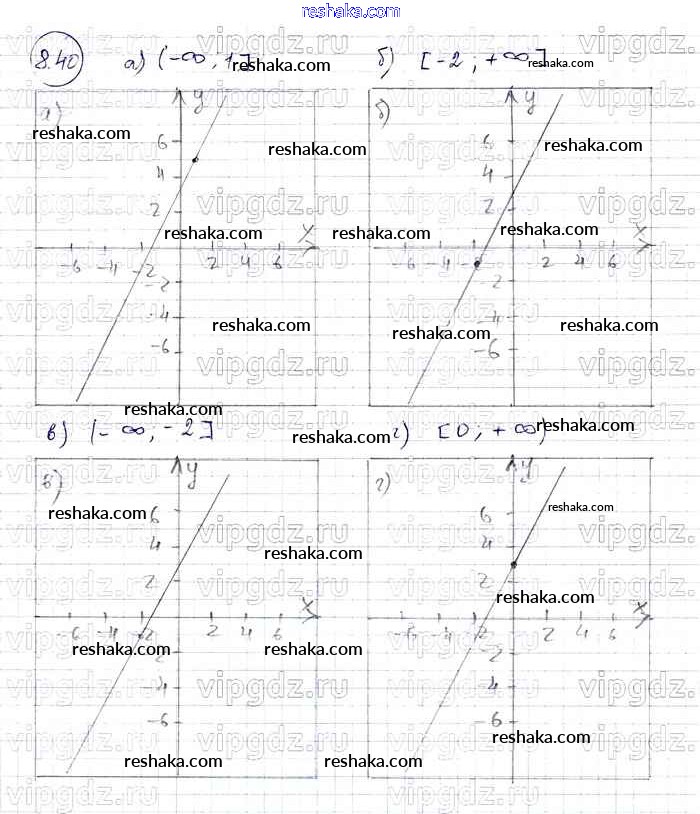 reshaka.com
8.40 а) (-∞, 1] б) [-2; +∞]
reshaka.com reshaka.com
а) y б) y
reshaka.com reshaka.com
reshaka.com
6 6
4 4
2 2
reshaka.com reshaka.com reshaka.com
x x
-6 -4 -2 2 4 6 -6 -4 2 4 6
-2 -2
-4 -4
reshaka.com reshaka.com reshaka.com
-6 -6
reshaka.com
в) (-∞, -2] г) [0; +∞)
reshaka.com reshaka.com
в) y г) y
reshaka.com reshaka.com
6 6
reshaka.com
4 4
2 2
reshaka.com
x x
-6 -4 -2 2 4 6 -6 -4 -2 2 4 6
reshaka.com reshaka.com
-2 -2
-4 -4
vipgdz.ru vipgdz.ru vipgdz.ru vipgdz.ru
-6 -6
reshaka.com
reshaka.com reshaka.com